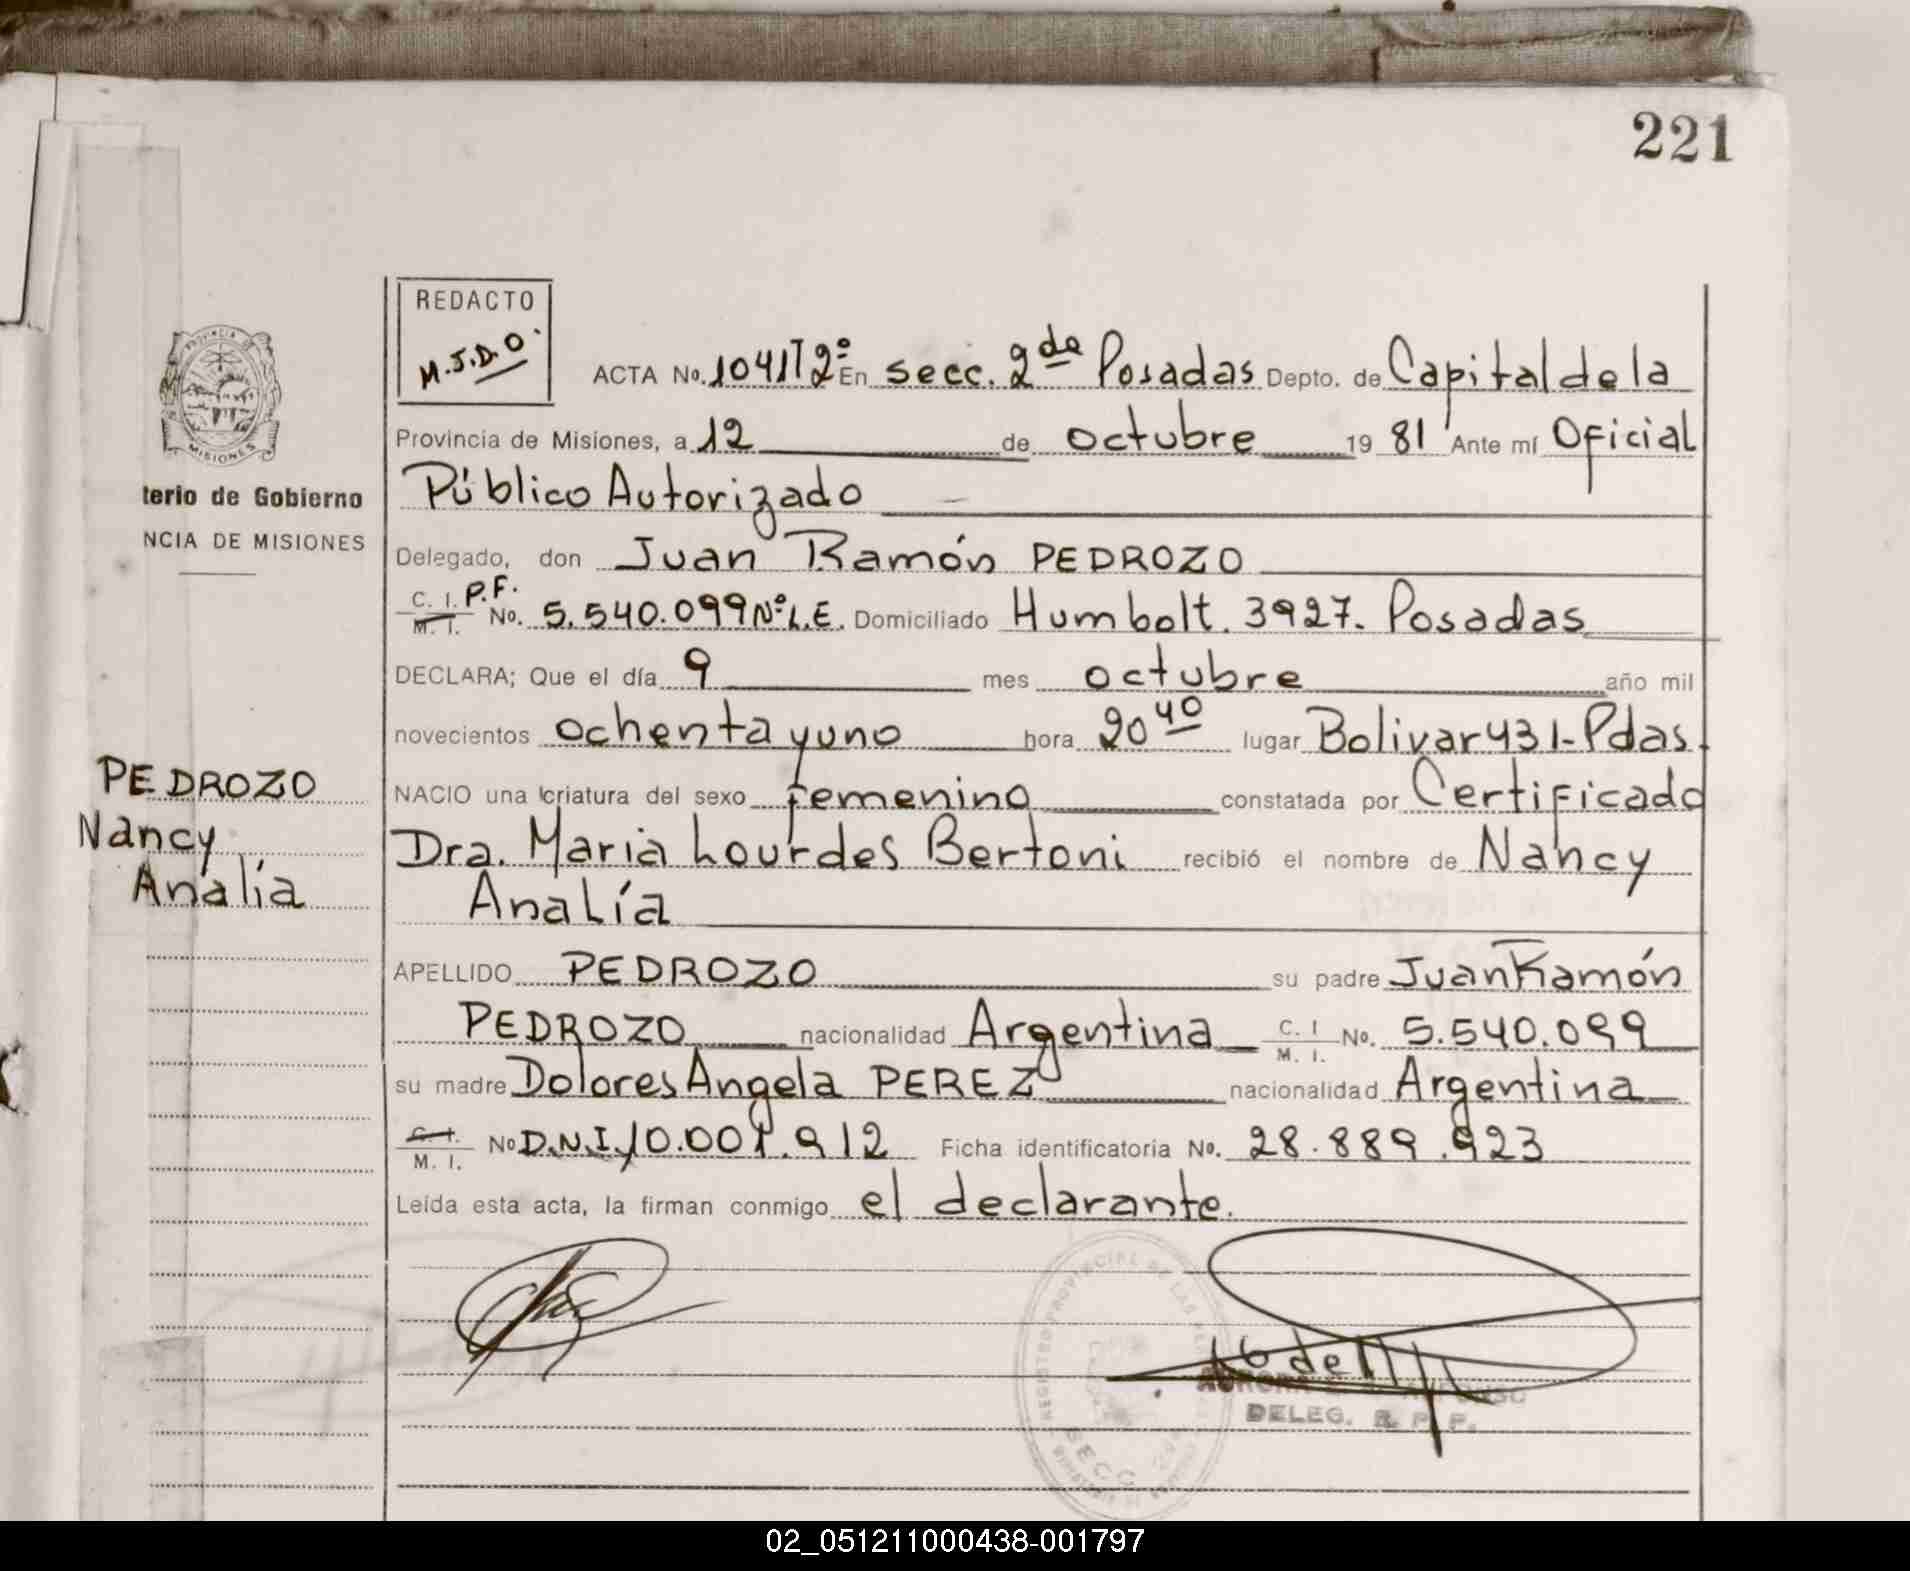 221
REDACTO
M.J.D.O.
PROVINCIA DE
MISIONES
terio de Gobierno
NCIA DE MISIONES
ACTA No. 1041T2º En secc. 2da Posadas Depto. de Capital de la
Provincia de Misiones, a 12 de octubre 19 81 Ante mí Oficial
Público Autorizado
Delegado, don Juan Ramón PEDROZO
C. I. P.F.
M. I. No. 5.540.099 Nº L.E. Domiciliado Humbolt. 3927. Posadas
DECLARA; Que el día 9 mes octubre año mil
novecientos ochenta y uno hora 20 40 lugar Bolivar 431-Pdas.
PEDROZO
Nancy
Analía
NACIO una criatura del sexo femenino constatada por Certificado
Dra. Maria Lourdes Bertoni recibió el nombre de Nancy
Analía
APELLIDO PEDROZO su padre Juan Ramón
PEDROZO nacionalidad Argentina C. I M. I. No. 5.540.099
su madre Dolores Angela PEREZ nacionalidad Argentina
C. I. M. I. No D.N.I. 10.001.912 Ficha identificatoria No. 28.889.923
Leída esta acta, la firman conmigo el declarante.
REGISTRO PROVINCIAL DE LAS
SECC
DELEG. R. P. P.
02_051211000438-001797